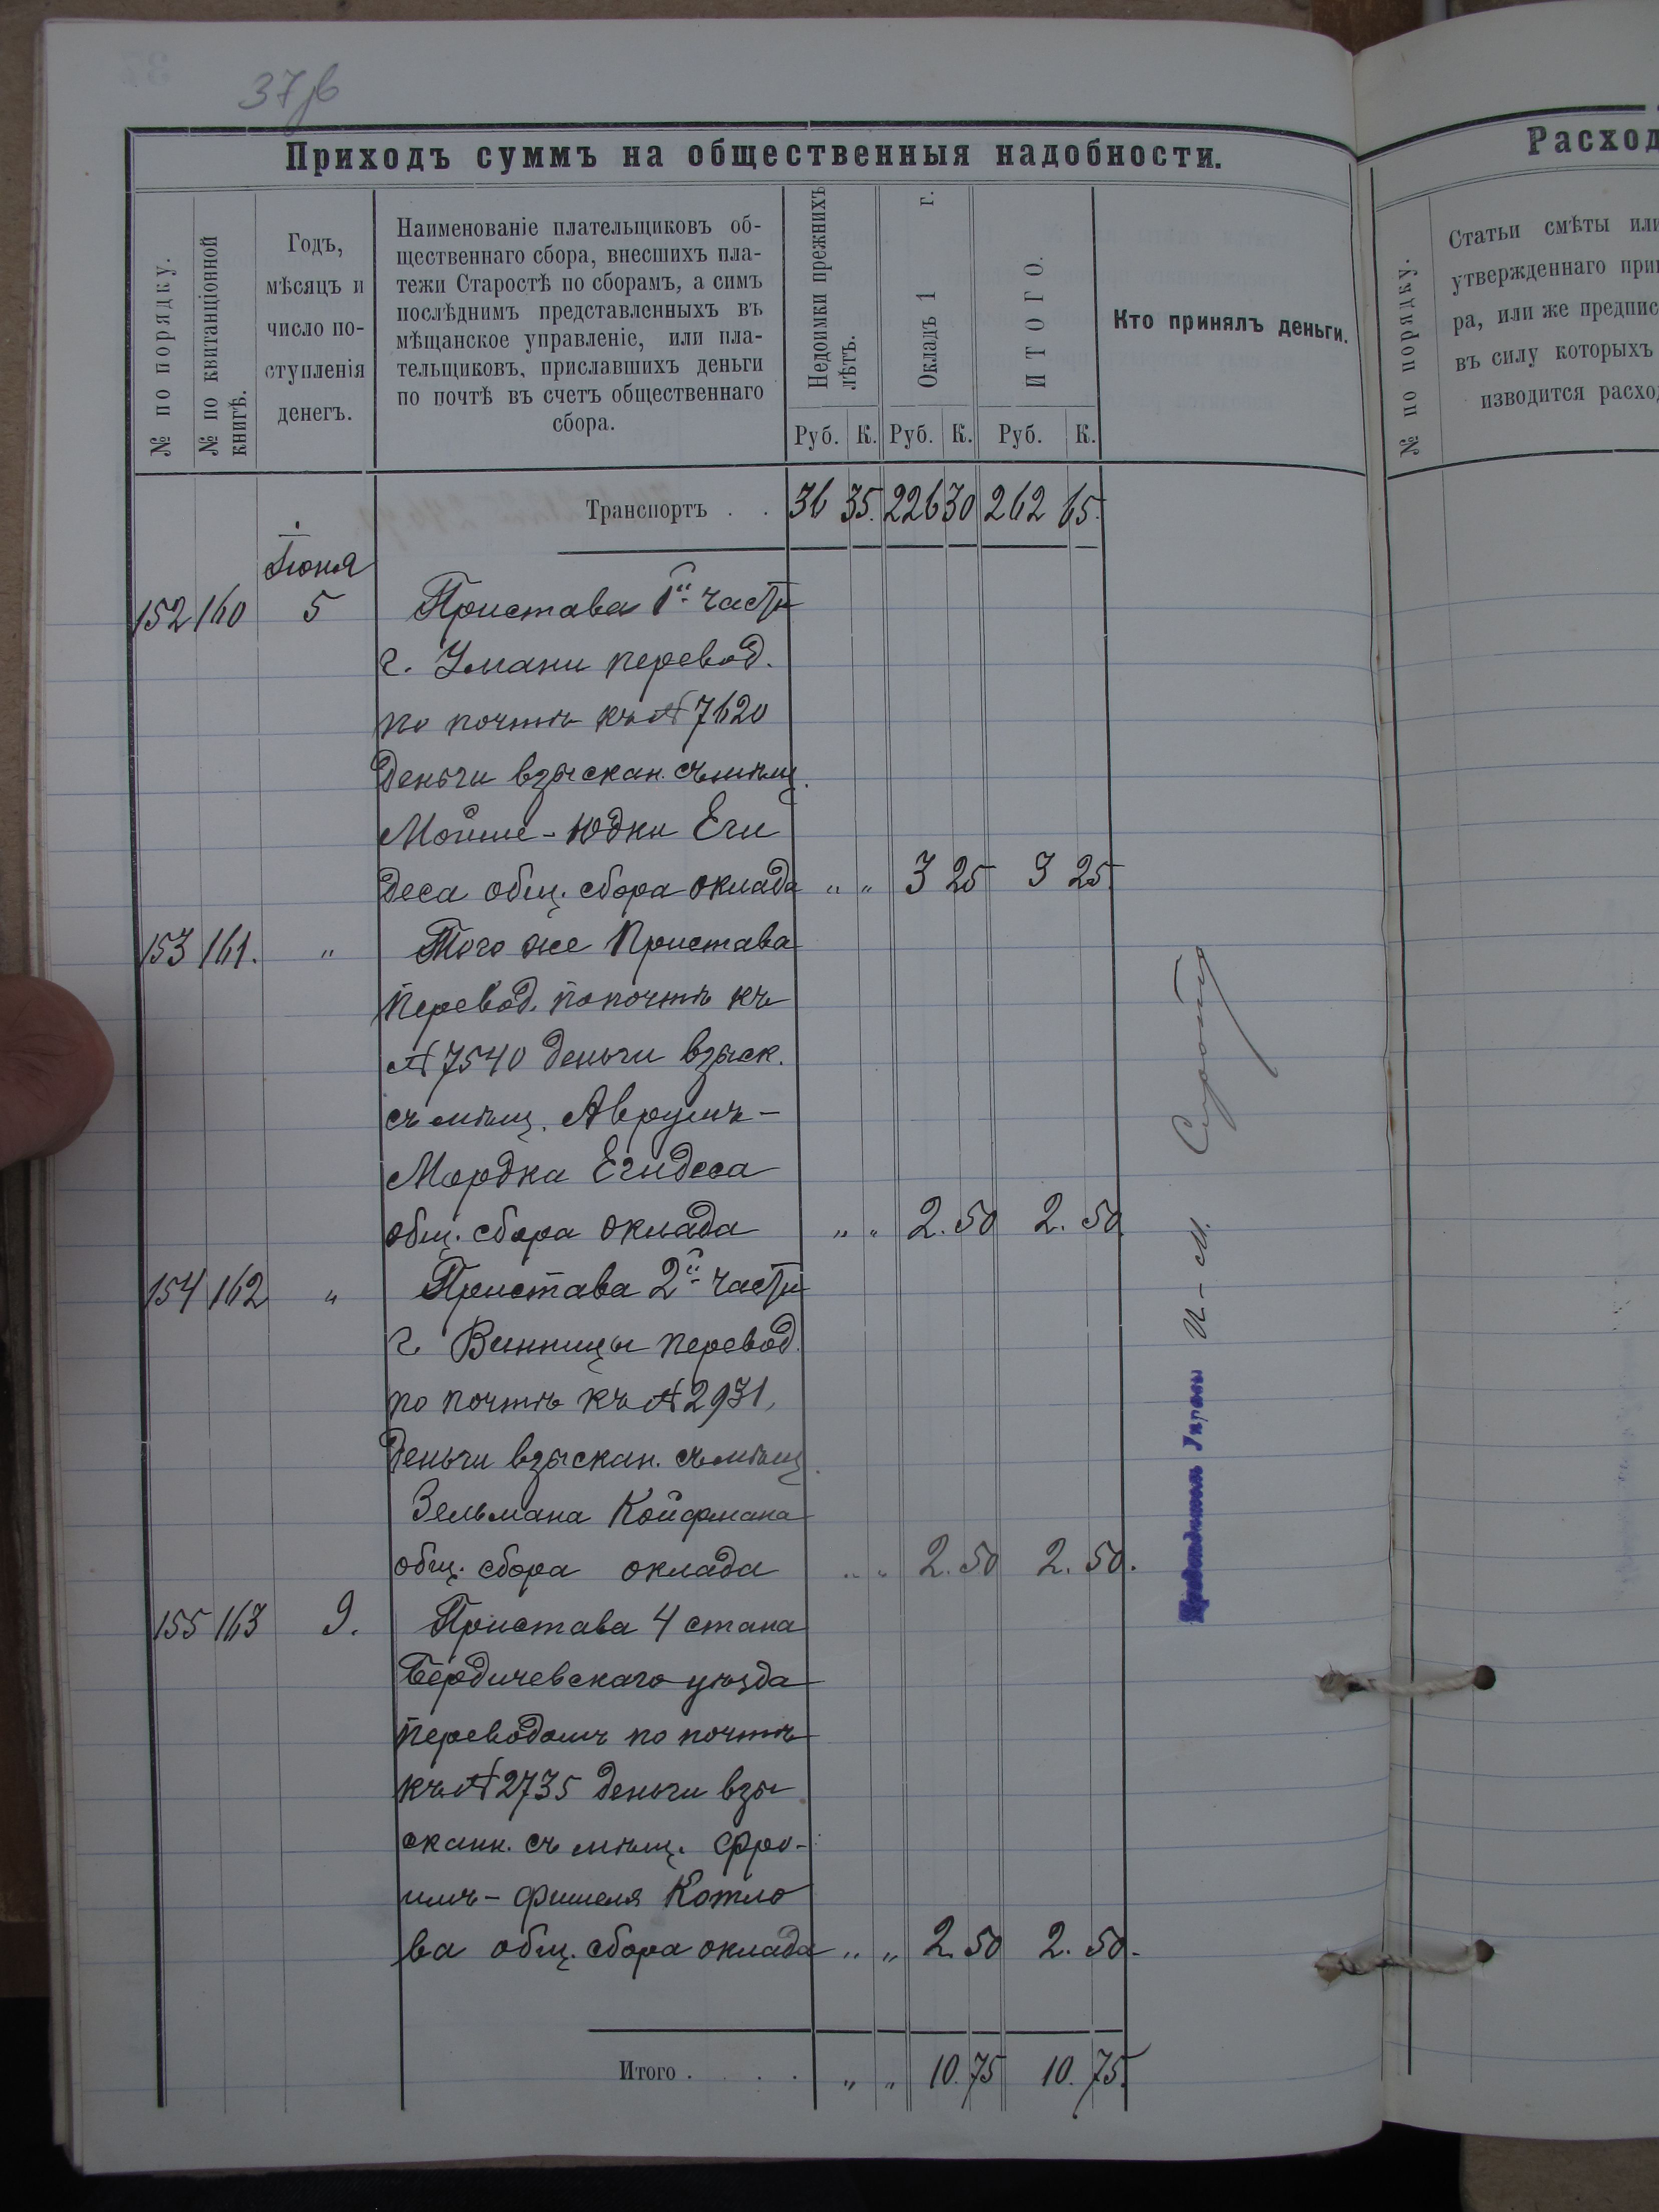 37 об
Приходъ суммъ на общественныя надобности.
№ по порядку.
№ по квитанціонной
книгѣ.
Годъ,
мѣсяцъ и
число по-
ступленія
денегъ.
Наименованіе плательщиковъ об-
щественнаго сбора, внесшихъ пла-
тежи Старостѣ по сборамъ, а симъ
послѣднимъ представленныхъ въ
мѣщанское управленіе, или пла-
тельщиковъ, приславшихъ деньги
по почтѣ въ счетъ общественнаго
сбора.
Недоимки прежнихъ
лѣтъ.
Окладъ 1 г.
ИТОГО.
Кто принялъ деньги.
Руб. К. Руб. К. Руб. К.
Транспортъ . . 36 35. 226 30 262 65.
Іюня
152 160 5 Пристава 1й части
г. Умани перевод.
по почтѣ къ № 7620
деньги взыскан. съ мѣщ.
Мойше-Юдки Еги
деса общ. сбора оклада „ „ 3 25 3 25.
153 161. „ Того же Пристава
перевод. по почтѣ къ
№ 7540 деньги взыск.
съ мѣщ. Аврумъ-
Мордка Егидеса
общ. сбора оклада „ „ 2.50 2.50.
154 162 „ Пристава 2й части
г. Винницы перевод.
по почтѣ къ № 2931,
деньги взыскан. съ мѣщ.
Зельмана Койфмана
общ. сбора оклада „ „ 2.50 2.50.
155 163 9. Пристава 4 стана
Бердичевскаго уѣзда
переводомъ по почтѣ
къ № 2735 деньги взы
сканн. съ мѣщ. Фро-
имъ-Фишеля Котло
ва общ. сбора оклада „ „ 2.50 2.50.
Итого . . . . „ „ 10.75 10.75.
И-М.
Расход
№ по порядку.
Статьи смѣты или
утвержденнаго при
ра, или же предпис
въ силу которыхъ
изводится расхо